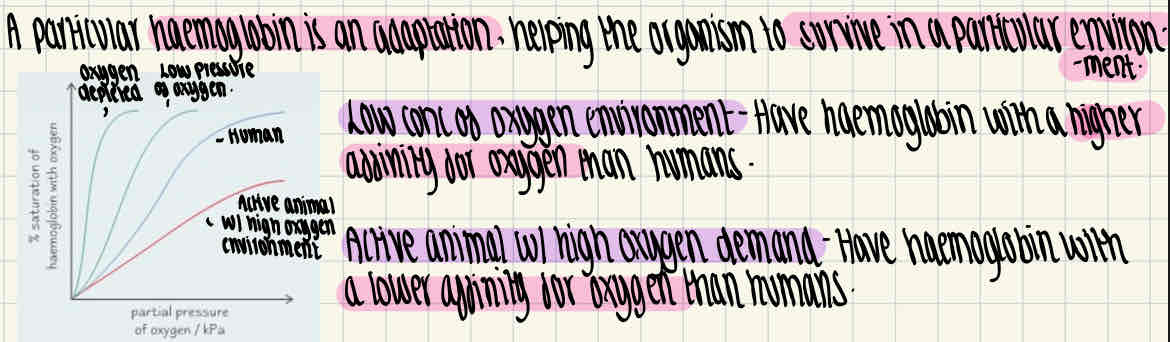 A particular haemoglobin is an adaptation, helping the organism to survive in a particular environ-
-ment.
oxygen depleted
Low pressure of oxygen.
- Human
Active animal
w/ high oxygen
environment
% saturation of
haemoglobin with oxygen
partial pressure
of oxygen / kPa
Low conc of oxygen environment - Have haemoglobin with a higher
affinity for oxygen than humans.
Active animal w/ high oxygen demand - Have haemoglobin with
a lower affinity for oxygen than humans.